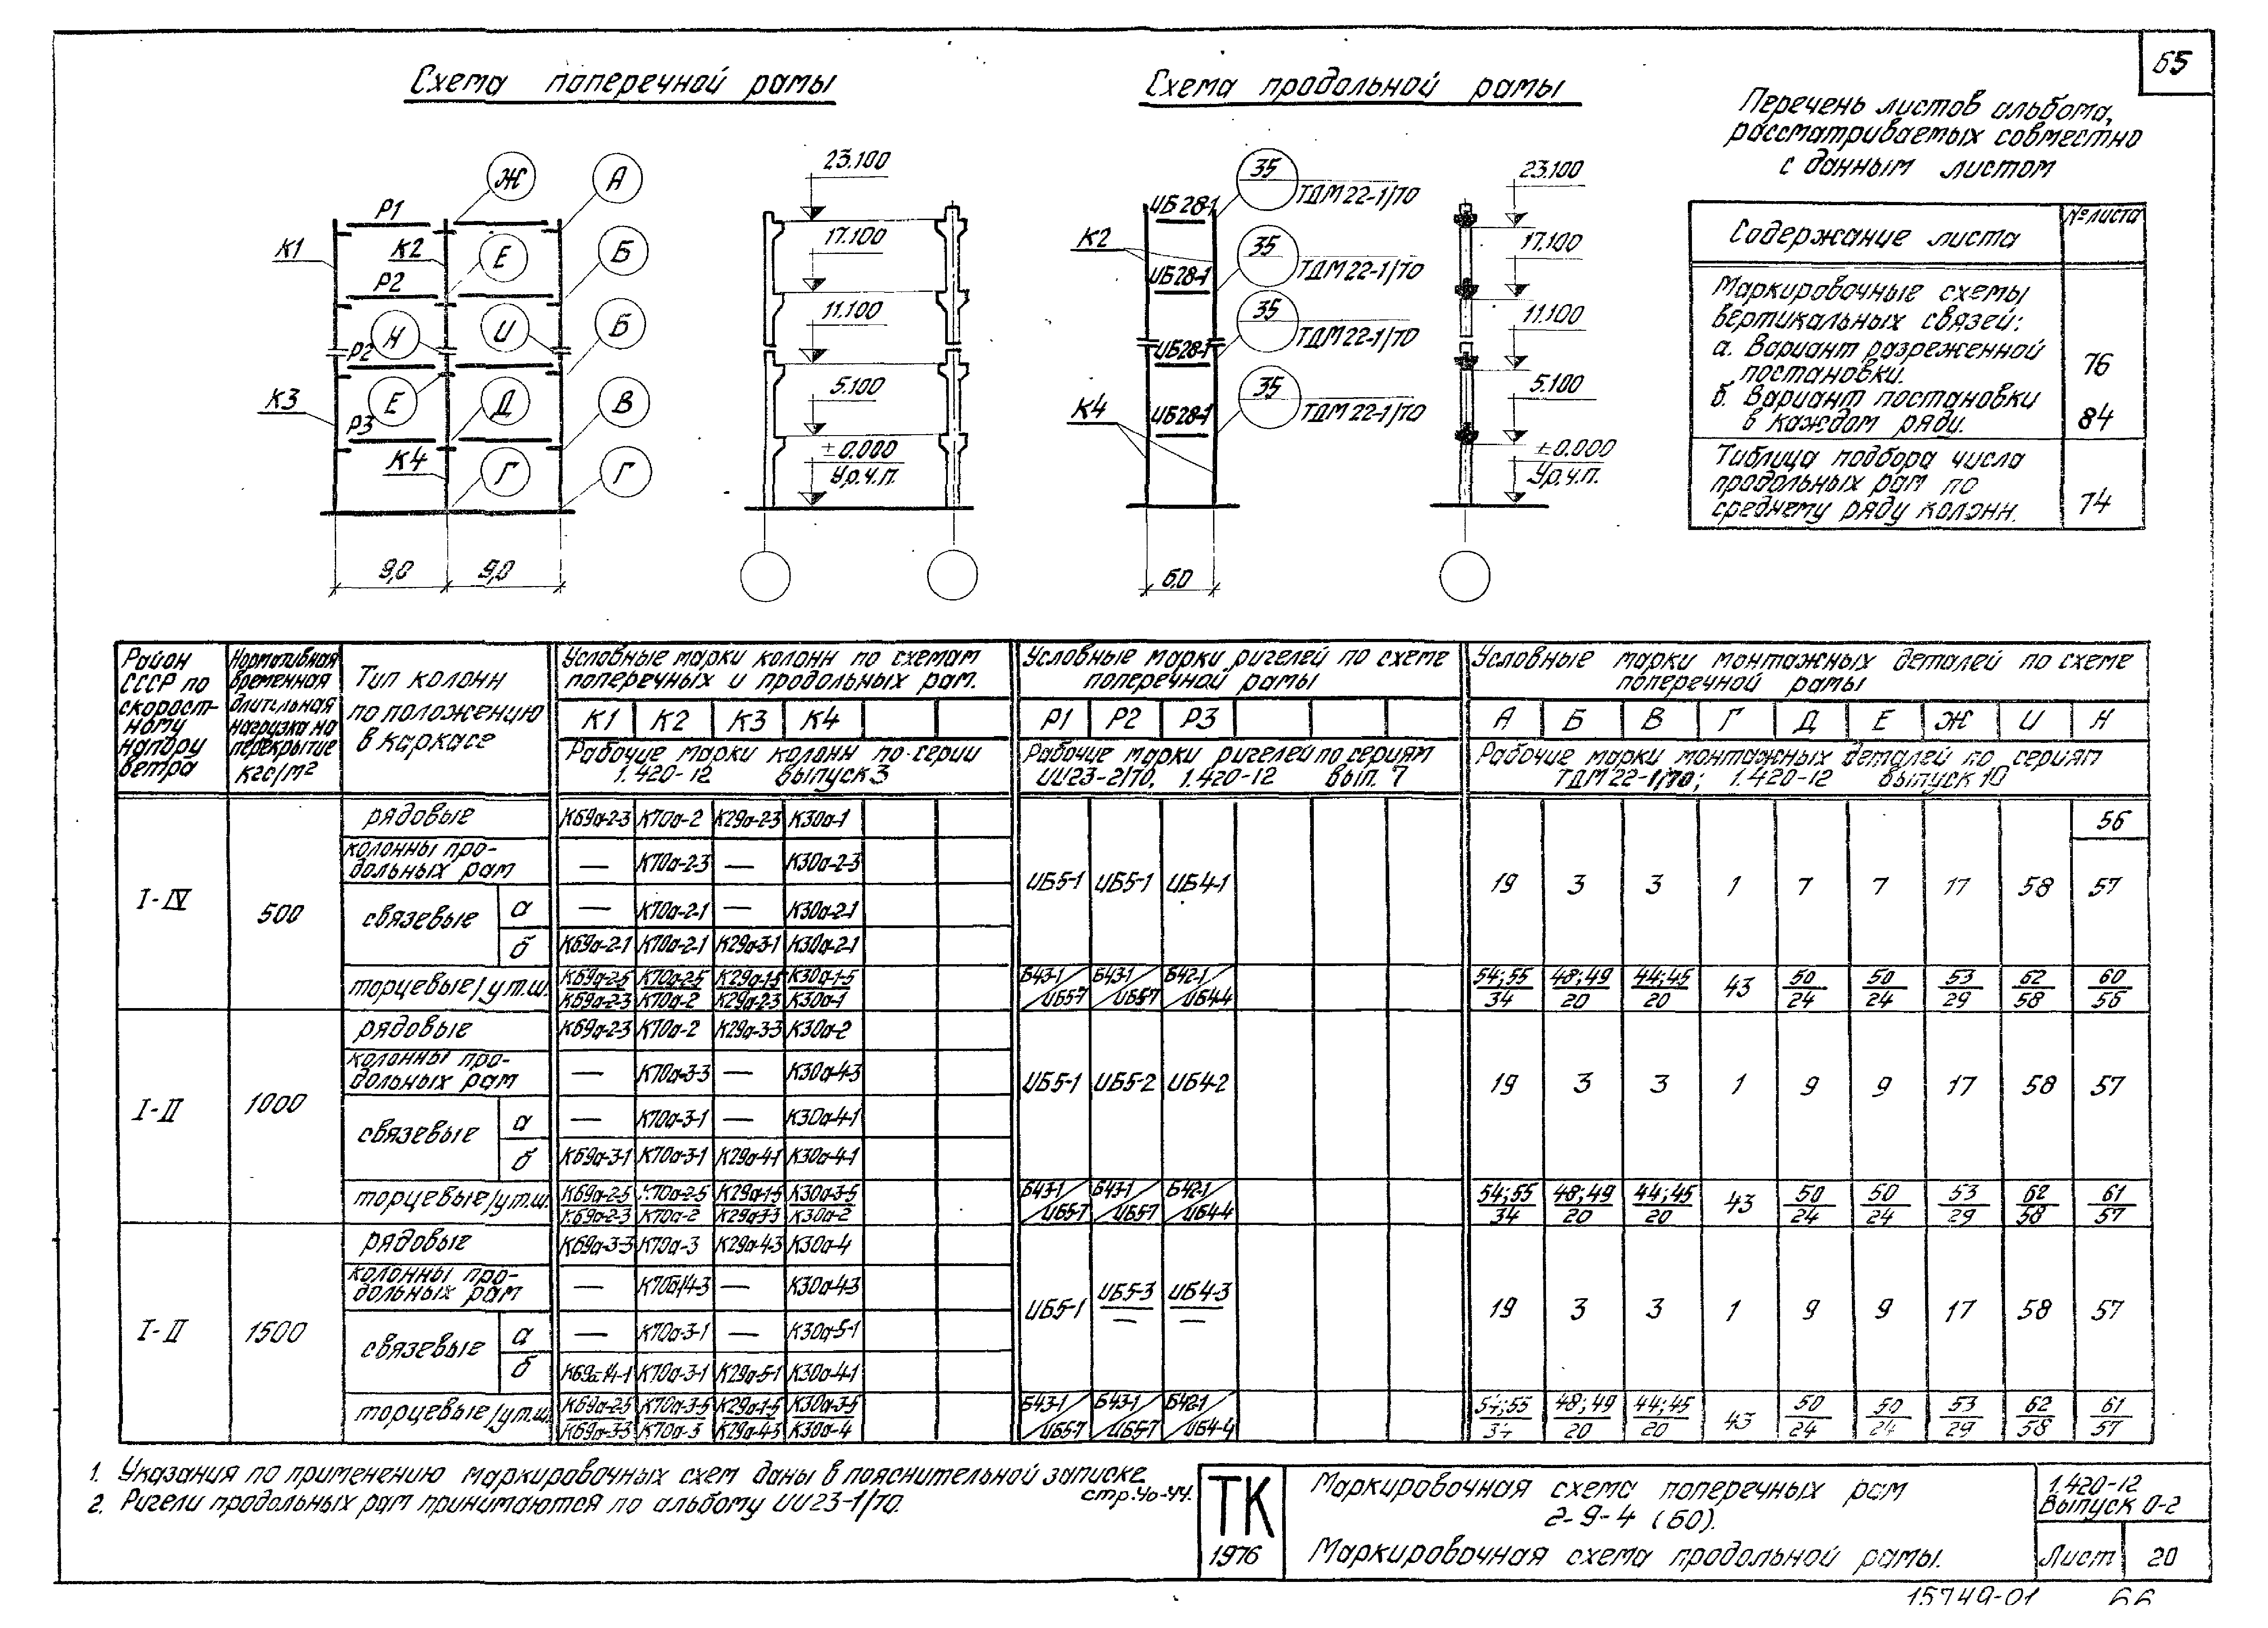 65
Схема поперечной рамы
Схема продольной рамы
Перечень листов альбома,
рассматриваемых совместно
с данным листом
Содержание листа
№ листа
Маркировочные схемы
вертикальных связей:
а. Вариант разреженной
постановки.
76
б. Вариант постановки
в каждом ряду.
84
Таблица подбора числа
продольных рам по
среднему ряду колонн.
74
Ж
А
Р1
К1
К2
Е
Б
Р2
Н
И
Б
Р2
К3
Е
Д
В
Р3
К4
Г
Г
9,0
9,0
23.100
17.100
11.100
5.100
±0.000
Ур.ч.п.
ИБ28-1
35
ТДМ22-1/70
К2
35
ИБ28-1
ТДМ22-1/70
35
ИБ28-1
ТДМ22-1/70
35
К4
ИБ28-1
ТДМ22-1/70
6,0
23.100
17.100
11.100
5.100
±0.000
Ур.ч.п.
Район
СССР по
скорост-
ному
напору
ветра
Нормативная
временная
длительная
нагрузка на
перекрытие
кгс/м²
Тип колонн
по положению
в каркасе
Условные марки колонн по схемам
поперечных и продольных рам.
Условные марки ригелей по схеме
поперечной рамы
Условные марки монтажных деталей по схеме
поперечной рамы
К1 К2 К3 К4
Р1 Р2 Р3
А Б В Г Д Е Ж И Н
Рабочие марки колонн по серии
1.420-12 выпуск 3
Рабочие марки ригелей по сериям
ИИ23-2/70, 1.420-12 вып. 7
Рабочие марки монтажных деталей по сериям
ТДМ22-1/70; 1.420-12 выпуск 10
I-IV
500
рядовые К69а-2-3 К70а-2 К29а-2-3 К30а-1
56
колонны про-
дольных рам
— К70а-2-3 — К30а-2-3
ИБ5-1 ИБ5-1 ИБ4-1
19 3 3 1 7 7 17 58 57
связевые
а — К70а-2-1 — К30а-2-1
б К69а-2-1 К70а-2-1 К29а-3-1 К30а-2-1
торцевые/у т.ш.
К69а-2-5 К70а-2-5 К29а-1-5 К30а-1-5
К69а-2-3 К70а-2 К29а-2-3 К30а-1
Б43-1/ Б43-1/ Б42-1/
/ИБ5-7 /ИБ5-7 /ИБ4-4
54;55 48;49 44;45 43 50 50 53 62 60
34 20 20 24 24 29 58 56
I-II
1000
рядовые К69а-2-3 К70а-2 К29а-3-3 К30а-2
колонны про-
дольных рам
— К70а-3-3 — К30а-4-3
ИБ5-1 ИБ5-2 ИБ4-2
19 3 3 1 9 9 17 58 57
связевые
а — К70а-3-1 — К30а-4-1
б К69а-3-1 К70а-3-1 К29а-4-1 К30а-4-1
торцевые/у т.ш.
К69а-2-5 К70а-2-5 К29а-1-5 К30а-3-5
К69а-2-3 К70а-2 К29а-3-3 К30а-2
Б43-1/ Б43-1/ Б42-1/
/ИБ5-7 /ИБ5-7 /ИБ4-4
54;55 48;49 44;45 43 50 50 53 62 61
34 20 20 24 24 29 58 57
I-II
1500
рядовые К69а-3-3 К70а-3 К29а-4-3 К30а-4
колонны про-
дольных рам
— К70а-4-3 — К30а-4-3
ИБ5-1 ИБ5-3 ИБ4-3
19 3 3 1 9 9 17 58 57
связевые
а — К70а-3-1 — К30а-5-1
б К69а-4-1 К70а-3-1 К29а-5-1 К30а-4-1
торцевые/у т.ш.
К69а-2-5 К70а-3-5 К29а-1-5 К30а-3-5
К69а-3-3 К70а-3 К29а-4-3 К30а-4
Б43-1/ Б43-1/ Б42-1/
/ИБ5-7 /ИБ5-7 /ИБ4-4
54;55 48;49 44;45 43 50 50 53 62 61
34 20 20 24 24 29 58 57
1. Указания по применению маркировочных схем даны в пояснительной записке
стр.40-44.
2. Ригели продольных рам принимаются по альбому ИИ23-1/70.
ТК
1976
Маркировочная схема поперечных рам
2-9-4 (60).
Маркировочная схема продольной рамы.
1.420-12
Выпуск 0-2
Лист 20
15749-01 66